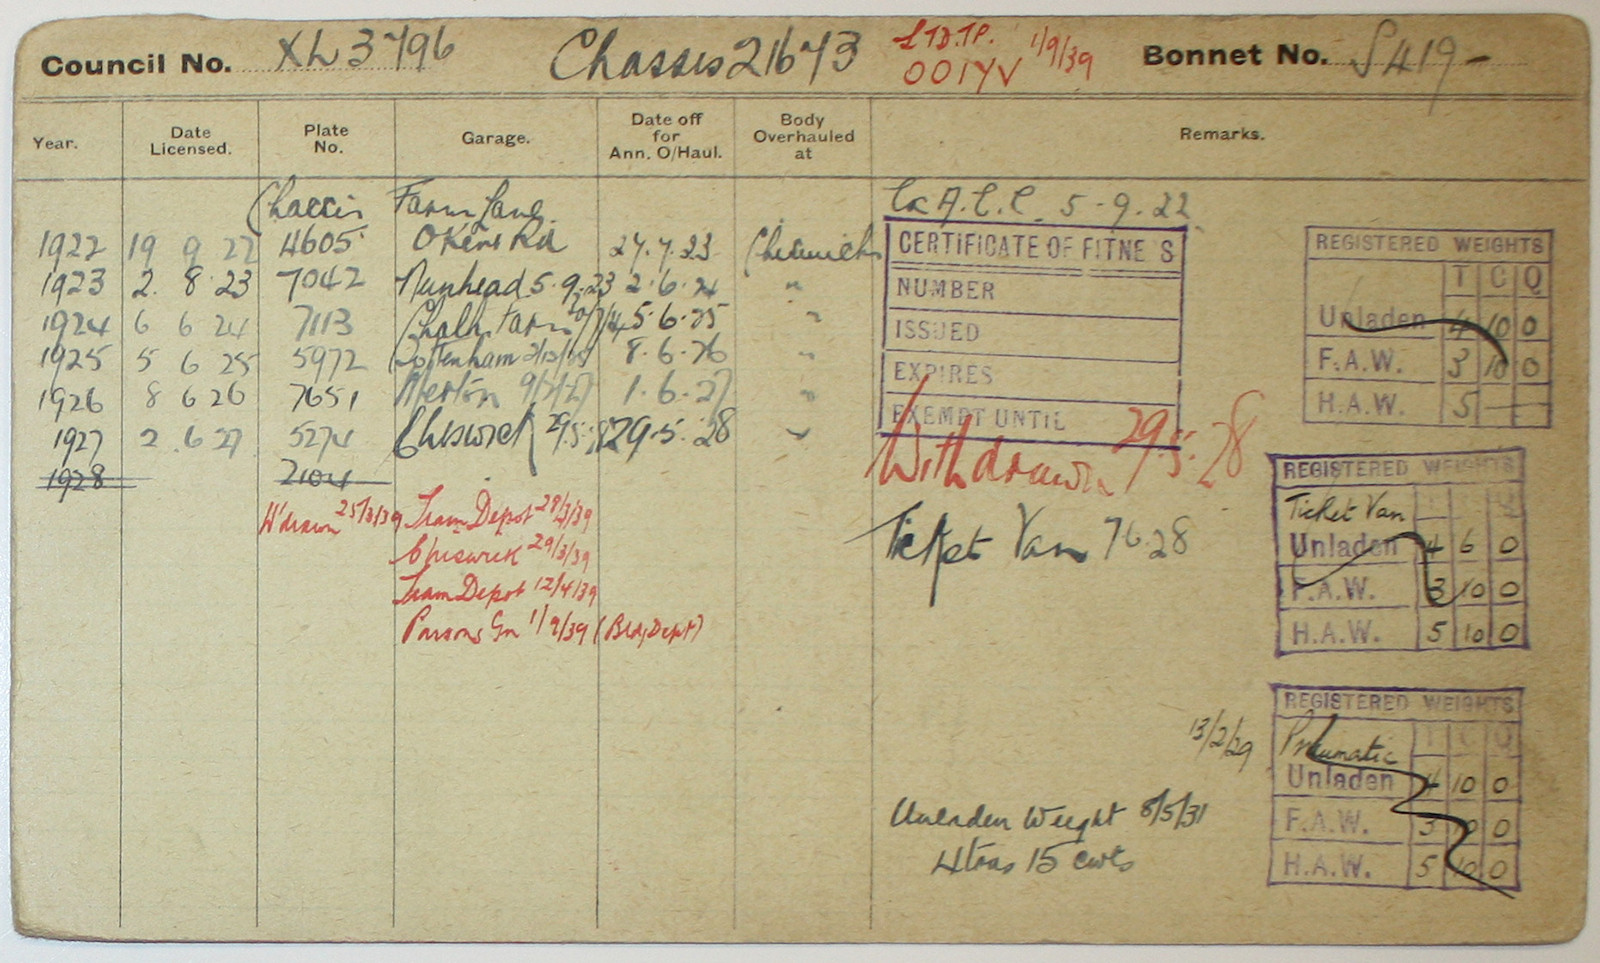 Council No. XL 3796 Chassis 21673 LTD.TP. 1/9/39 Bonnet No. S 419 -
001YV
Year. Date Licensed. Plate No. Garage. Date off for Ann. O/Haul. Body Overhauled at Remarks.
Chassis Farm Lane 5-9-22
1922 19 9 22 4605 O Kent Rd 27.7.23 Chiswick
1923 2. 8 23 7042 Nunhead 5.9.23 2.6.24 "
1924 6 6 24 7113 Chalk Farm 5.6.25 "
1925 5 6 25 5972 Tottenham 8.6.26 "
1926 8 6 26 7651 Merton 1.6.27 "
1927 2 6 27 5274 Chiswick 29.5.28 "
1928 2104
W'drawn 25/3/39 Tram Depot 28/3/39
Chiswick 29/3/39
Tram Depot 12/4/39
Parsons Gn 1/9/39 (Bldg Dept)
CERTIFICATE OF FITNE S
NUMBER
ISSUED
EXPIRES
EXEMPT UNTIL
Withdrawn 29.5.28
Ticket Van 7.6.28
REGISTERED WEIGHTS
T C Q
Unladen 4 10 0
F.A.W. 3 10 0
H.A.W. 5 — —
REGISTERED WEIGHTS
Ticket Van T C Q
Unladen 4 6 0
F.A.W. 3 10 0
H.A.W. 5 10 0
13/2/29
REGISTERED WEIGHTS
Pneumatic T C Q
Unladen 4 10 0
F.A.W. 3 10 0
H.A.W. 5 10 0
Unladen Weight 8/5/31
4 tons 15 cwts